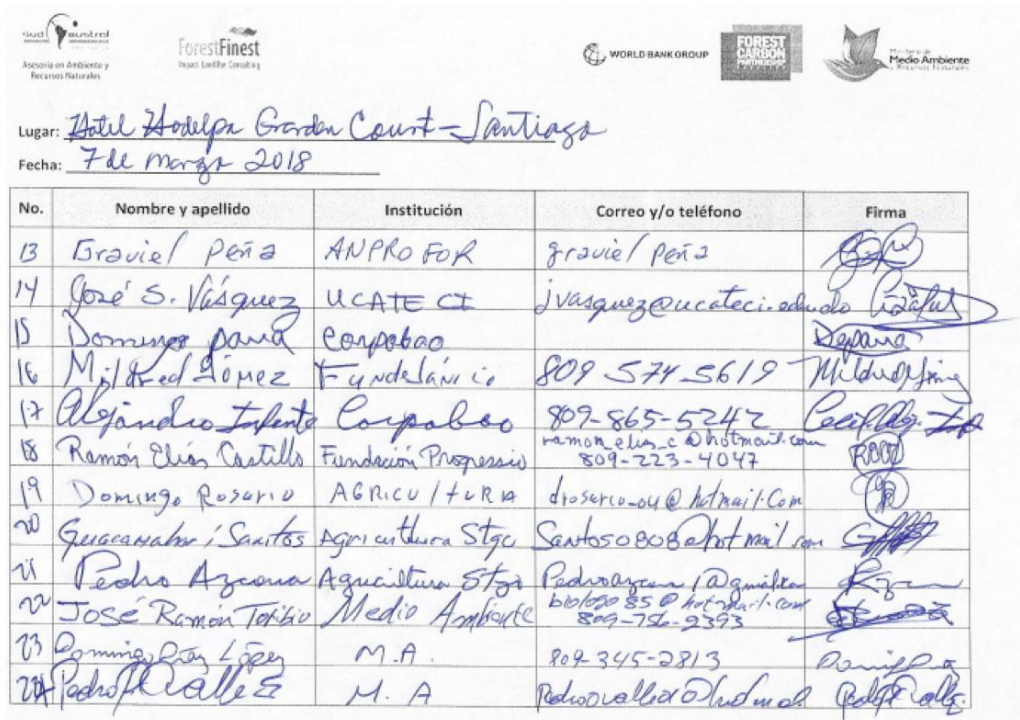 sud austral
Asesoría en Ambiente y
Recursos Naturales
ForestFinest
Impact. Landlife Consulting
WORLD BANK GROUP
FOREST
CARBON
PARTNERSHIP
Ministerio de
Medio Ambiente
y Recursos Naturales
Lugar: Hotel Hodelpa Garden Court - Santiago
Fecha: 7 de marzo 2018
No. Nombre y apellido Institución Correo y/o teléfono Firma
13 Graviel Peña ANPROFOR graviel Peña
14 José S. Vásquez UCATECI jvasquez@ucateci.edu.do
15 Domingo parra Corpobao Deparra
16 Mildred Gómez Fundelánicio 809 574-5619
17 Alejandro Infante Corpobao 809-865-5242
18 Ramón Elías Castillo Fundación Progressio ramon_elias_c@hotmail.com
809-223-4047
19 Domingo Rosario AGRICULTURA drosario_04@hotmail.com
20 Santos Agricultura Stgo Santos0808@hotmail.com
21 Pedro Azcona Agricultura Stgo
22 José Ramón Toribio Medio Ambiente biologo85@hotmail.com
809-756-2393
23 Domingo Díaz López M.A. 809-345-2813
24 Pedro M. A